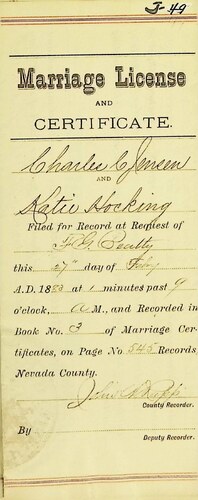 J-49
Marriage License
AND
CERTIFICATE.
Charles C Jensen
AND
Katie Hocking
Filed for Record at Request of
F. G. Beatty
this 27th day of Feby
A.D. 1883 at 1 minutes past 9
o'clock, A M., and Recorded in
Book No. 3 of Marriage Cer-
tificates, on Page No 545 Records,
Nevada County.
County Recorder.
By
Deputy Recorder.